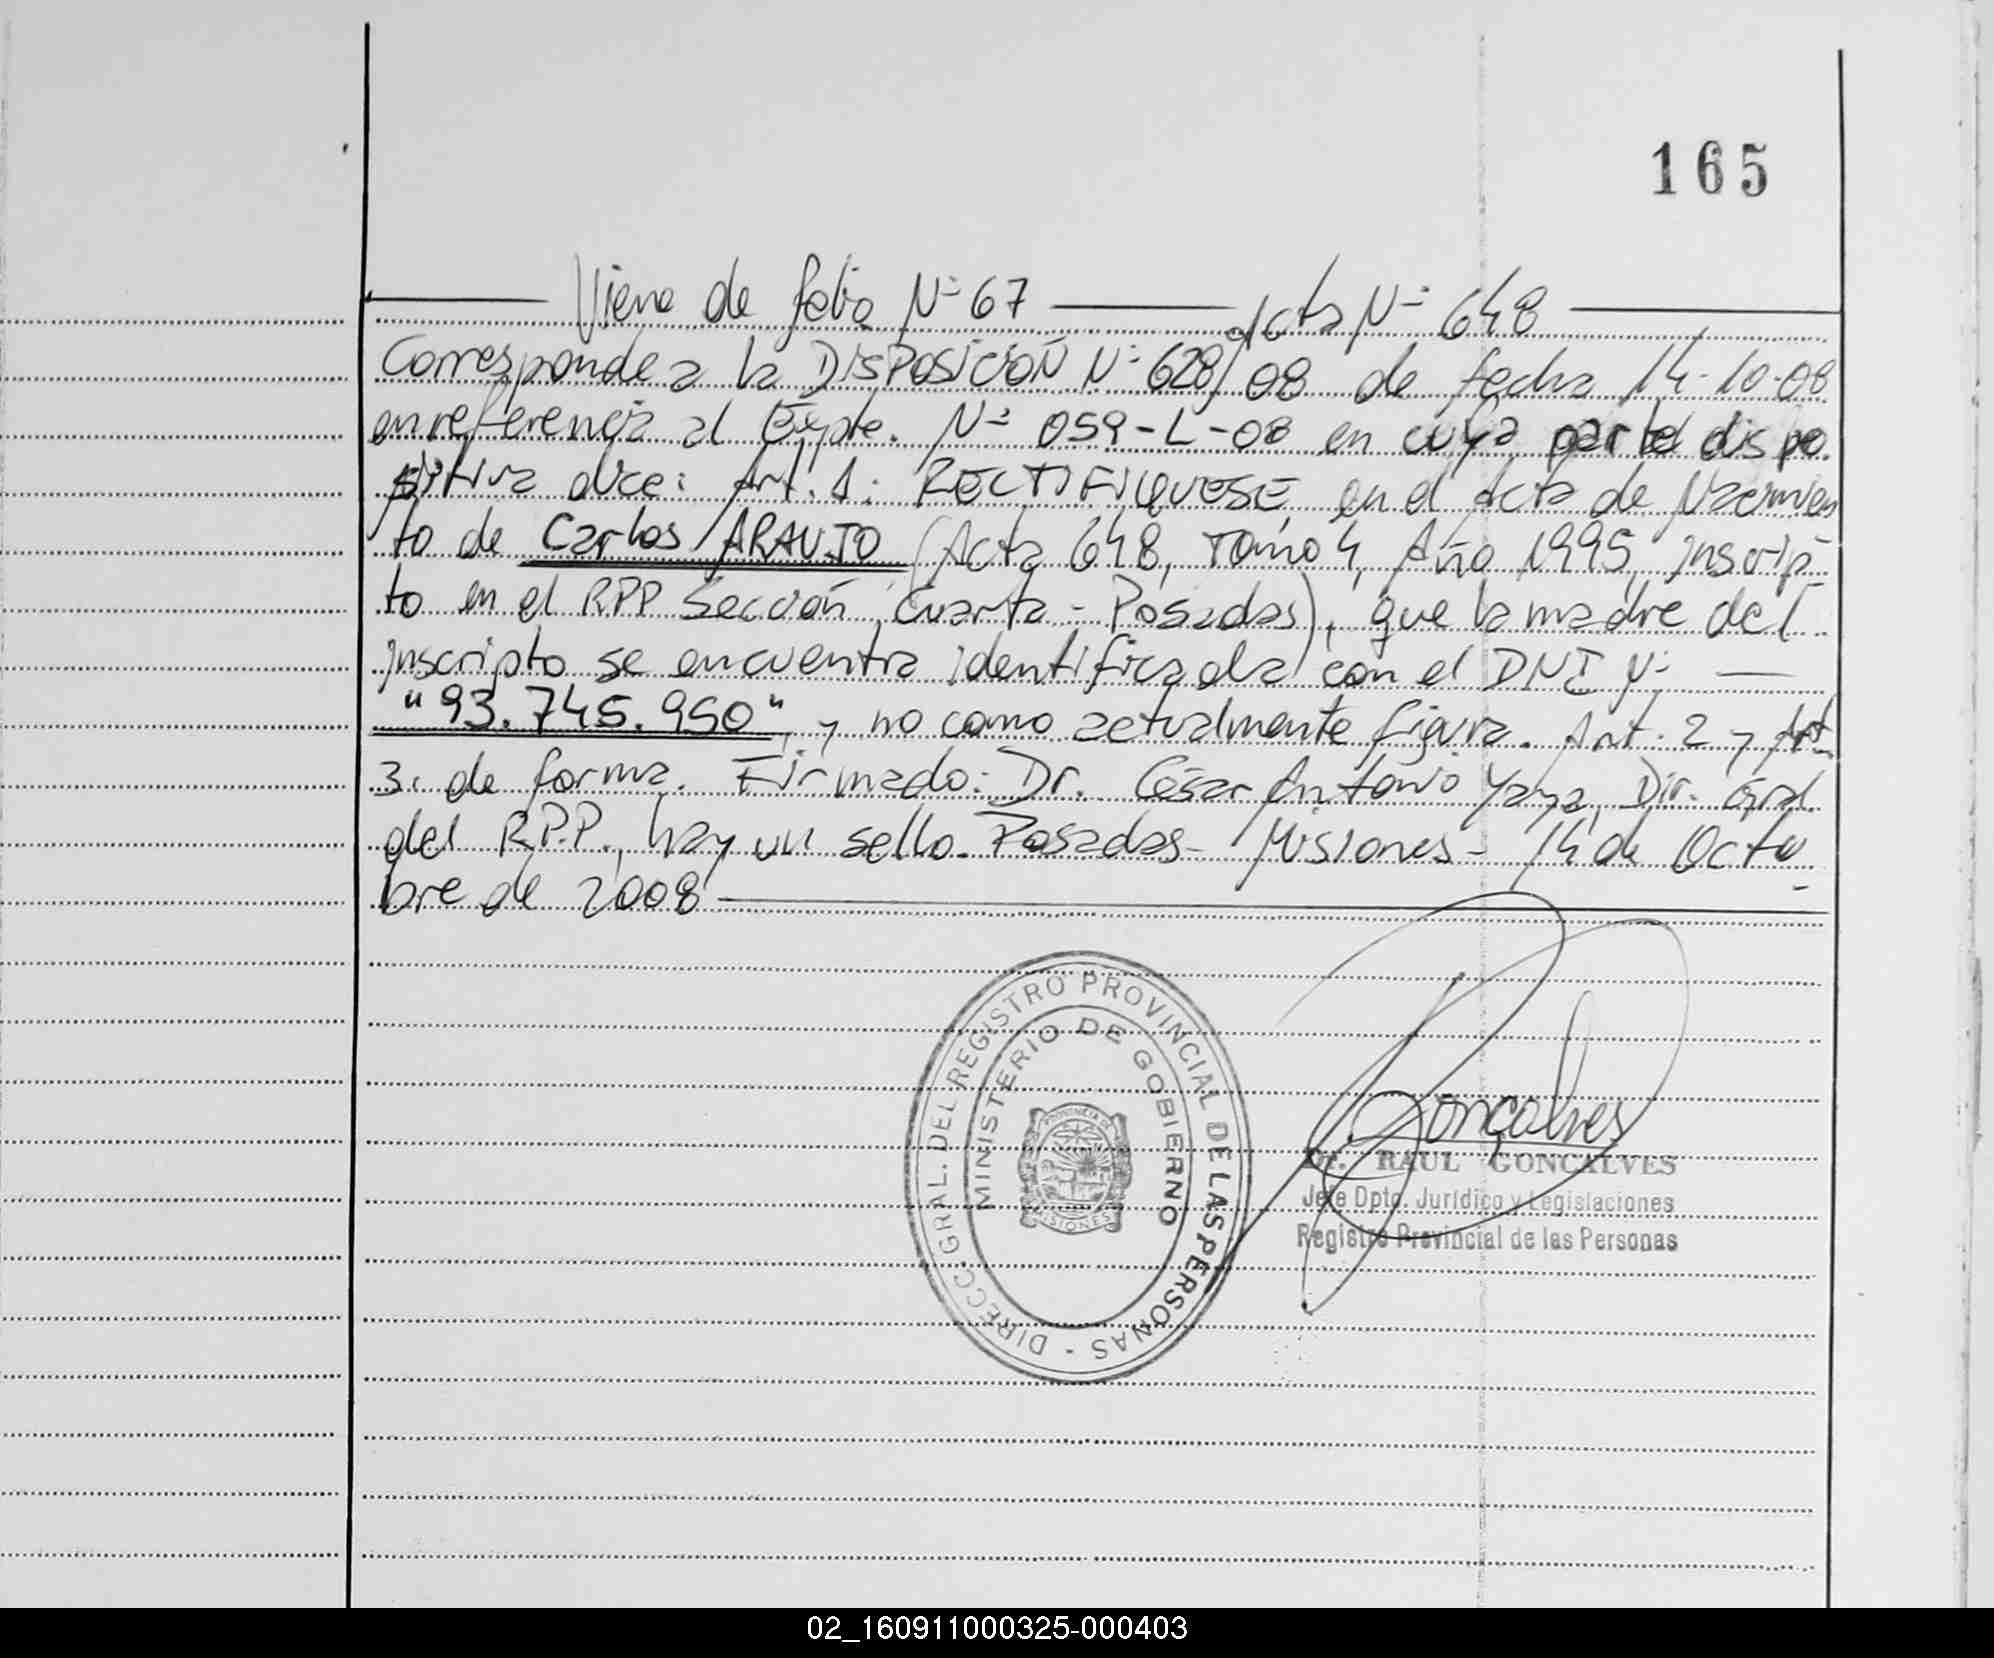 165
Viene de folio Nº 67 Acta Nº 648
Corresponde a la DISPOSICIÓN Nº 628/08 de fecha 14-10-08
en referencia al Expte. Nº 059-L-08 en cuya parte dispo
sitiva dice: Art. 1: RECTIFIQUESE, en el Acta de Nacimien
to de Carlos ARAUJO (Acta 648, Tomo 4, Año 1995, inscrip
to en el RPP Sección Cuarta - Posadas), que la madre del
inscripto se encuentra identificada con el DNI Nº
"93.745.950", y no como actualmente figura. Art. 2 y Art.
3. de forma. Firmado: Dr. César Antonio Yaya, Dir. Gral.
del R.P.P., hay un sello. Posadas - Misiones - 14 de Octu
bre de 2008
DIRECC. GRAL. DEL REGISTRO PROVINCIAL DE LAS PERSONAS -
MINISTERIO DE GOBIERNO
PROVINCIA DE
MISIONES
Gonçalves
Dr. RAUL GONCALVES
Jefe Dpto. Jurídico y Legislaciones
Registro Provincial de las Personas
02_160911000325-000403